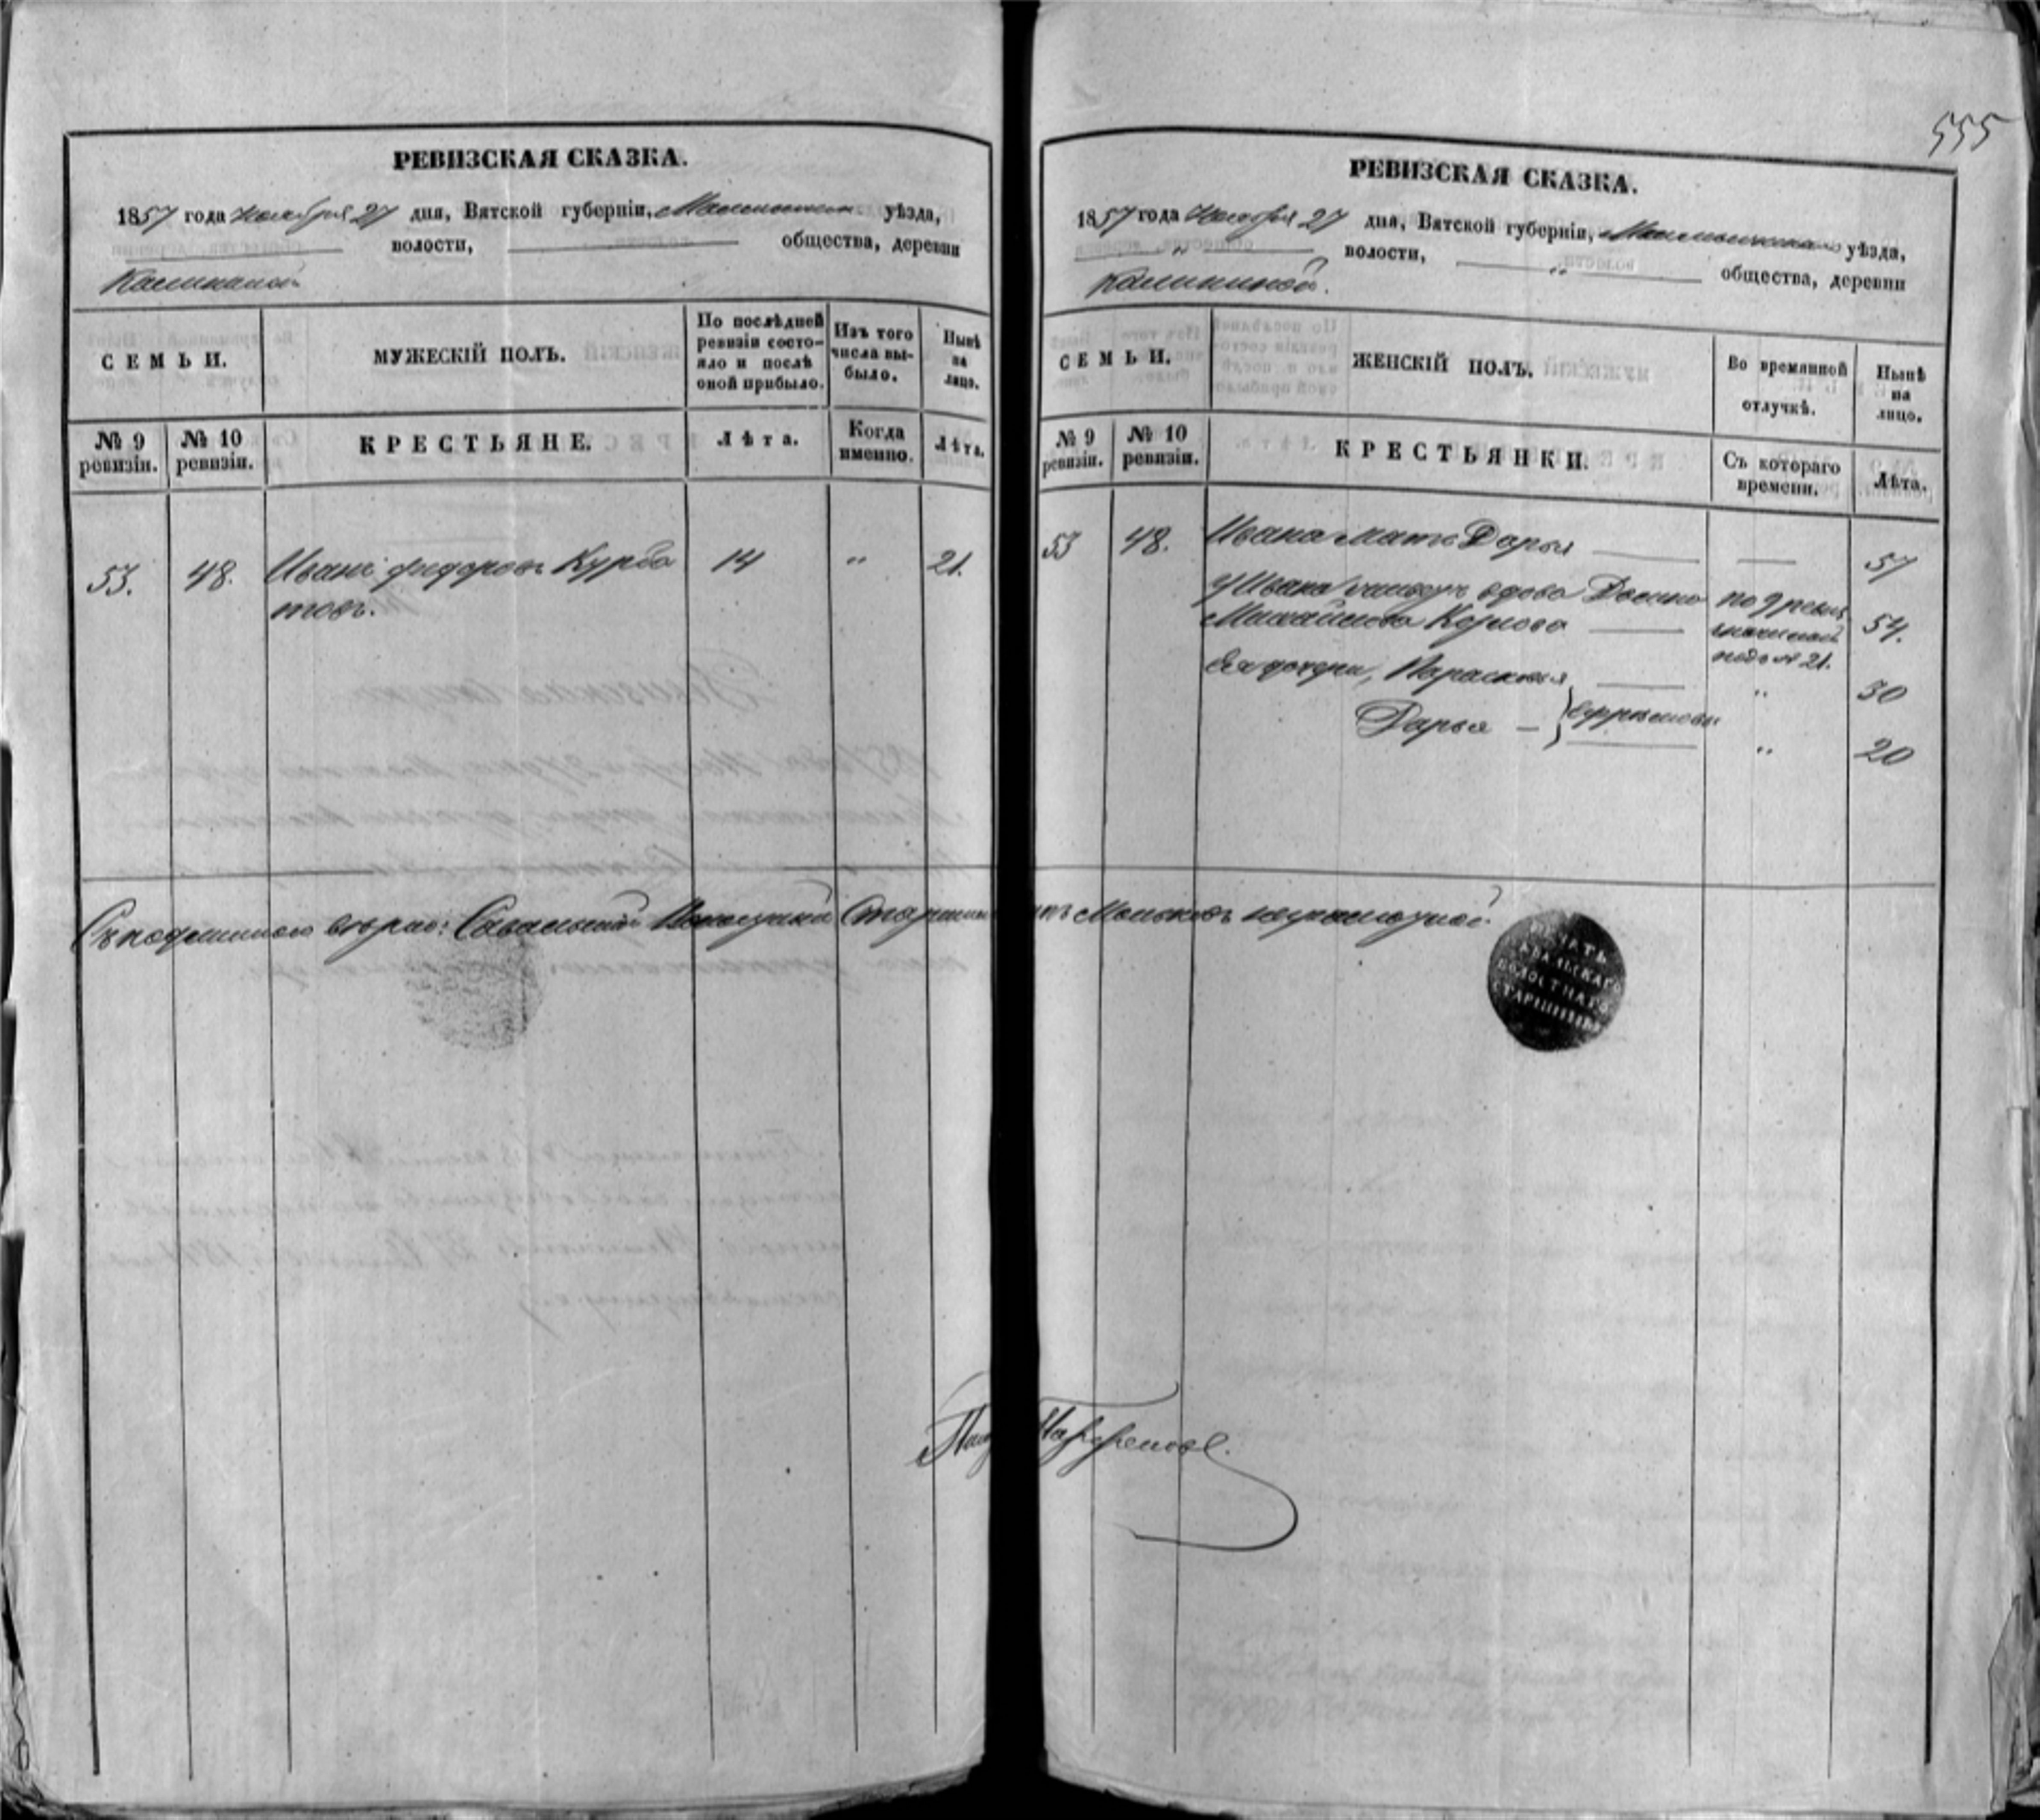 555
РЕВИЗСКАЯ СКАЗКА.
1857 года Ноября 27 дня, Вятской губерніи, уѣзда,
волости, общества, деревни
РЕВИЗСКАЯ СКАЗКА.
1857 года Ноября 27 дня, Вятской губерніи, Малмыжскаго уѣзда,
" волости, " общества, деревни
Калининой.
СЕМЬИ.
МУЖЕСКІЙ ПОЛЪ.
По послѣдней
ревизіи состо-
яло и послѣ
оной прибыло.
Изъ того
числа вы-
было.
Нынѣ
на
лицо.
№ 9
ревизіи.
№ 10
ревизіи.
КРЕСТЬЯНЕ.
Лѣта.
Когда
именно.
Лѣта.
53. 48. Иванъ Федоровъ Курба 14 " 21.
товъ.
СЕМЬИ.
ЖЕНСКІЙ ПОЛЪ.
Во времянной
отлучкѣ.
Нынѣ
на
лицо.
№ 9
ревизіи.
№ 10
ревизіи.
КРЕСТЬЯНКИ.
Съ котораго
времени.
Лѣта.
53 48. Ивана мать Дарья 57
У Ивана вдова по 9 ревиз.
Михайлова 54.
подъ № 21.
Ея дочери, Парасковья " 30
Дарья Ефремовы " 20
Съ подлиннымъ вѣрно: Савальскій Волостной
ПЕЧАТЬ
САВАЛЬСКАГО
ВОЛОСТНАГО
СТАРШИНЫ